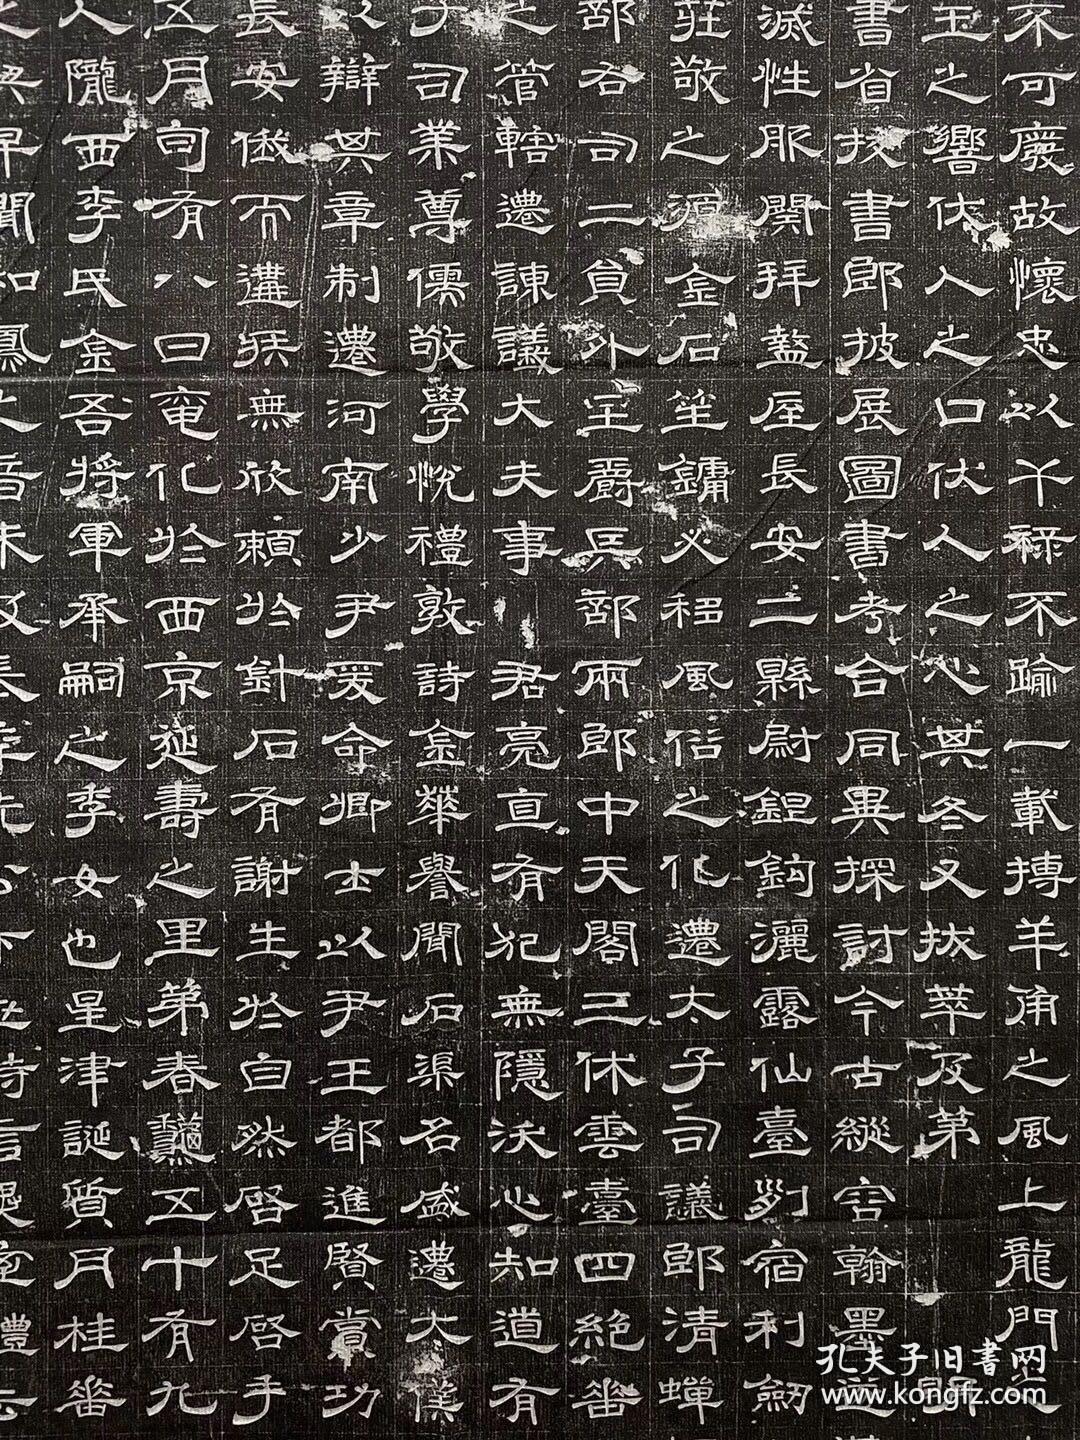 不可廢故懷忠以干祿不踰一載搏羊角之風上龍門之
玉之響伏人之口伏人之心其冬又拔萃及第
書省技書郎披展圖書考合同異探討今古縱容翰墨
滅性服闋拜盩厔長安二縣尉鋥鉤灑露仙臺列宿利劒
莊敬之源金石笙鏞必移風俗之化遷太子司議郎清蟬
部右司二員外主爵兵部兩郎中天閣三休雲臺四絕番
之管轄遷諫議大夫事君亮直有犯無隱沃心知道有
子司業尊儒敬學悅禮敦詩金華譽聞石渠名盛遷太僕
辯其章制遷河南少尹爰命卿士以尹王都進賢賞功
長安俄而遘疾無欣賴於針石有謝生於白然啓足啓手
五月旬有八日奄化於西京延壽之里第春龝五十有九
人隴西李氏金吾將軍承嗣之季女也星津誕質月桂番
早聞和鳳之音未
孔夫子旧書网
www.kongfz.com